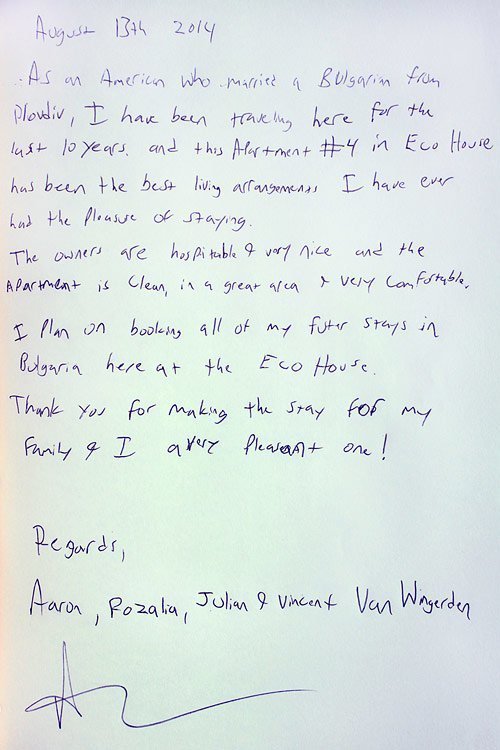 August 13th 2014
As an American who married a Bulgarian from
Plovdiv, I have been traveling here for the
last 10 years. and this Apartment #4 in Eco House
has been the best living arrangements I have ever
had the pleasure of staying.
The owners are hospitable & very nice and the
Apartment is clean, in a great area & very comfortable.
I plan on booking all of my futer stays in
Bulgaria here at the Eco House.
Thank you for making the stay for my
Family & I a very pleasant one!
Regards,
Aaron, Rozalia, Julian & Vincent Van Wingerden